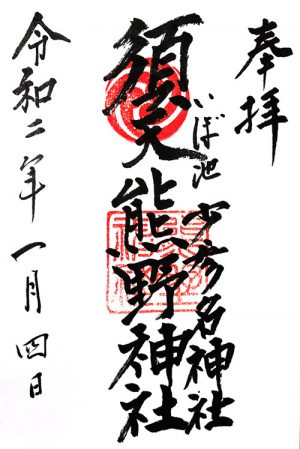 奉拝
いぼ池 少彦名神社
須天熊野神社
令和二年一月四日